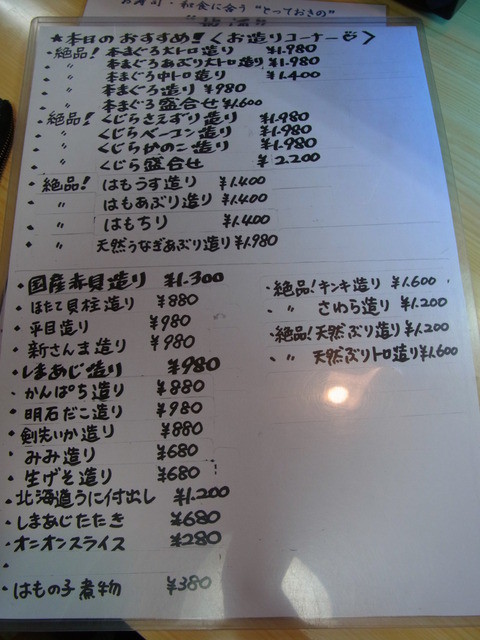 お寿司・和食に合う"とっておきの"
★本日のおすすめ!〈お造りコーナー〉
・絶品! 本まぐろ大トロ造り ¥1.980
・〃 本まぐろあぶり大トロ造り ¥1.980
・〃 本まぐろ中トロ造り ¥1.400
・〃 本まぐろ造り ¥980
・〃 本まぐろ盛合せ ¥1.600
・絶品! くじらさえずり造り ¥1.980
・〃 くじらベーコン造り ¥1.980
・〃 くじらかのこ造り ¥1.980
・〃 くじら盛合せ ¥2.200
・絶品! はもうす造り ¥1.400
・〃 はもあぶり造り ¥1.400
・〃 はもちり ¥1.400
・〃 天然うなぎあぶり造り ¥1.980
・国産赤貝造り ¥1.300
・ほたて貝柱造り ¥880
・平目造り ¥980
・新さんま造り ¥980
・しまあじ造り ¥980
・かんぱち造り ¥880
・明石だこ造り ¥980
・剣先いか造り ¥880
・みみ造り ¥680
・生げそ造り ¥680
・北海道うに付出し ¥1.200
・しまあじたたき ¥680
・オニオンスライス ¥280
・
・はもの子煮物 ¥380
・絶品! キンキ造り ¥1.600
・〃 さわら造り ¥1.200
・絶品! 天然ぶり造り ¥1.200
・〃 天然ぶりトロ造り ¥1.600